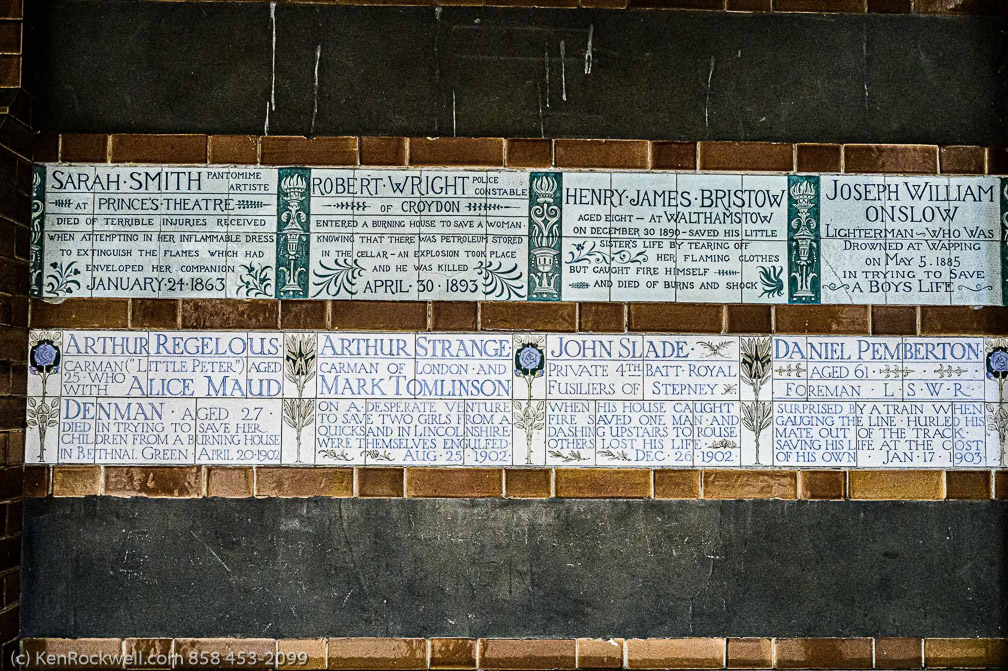 SARAH·SMITH PANTOMIME ARTISTE
AT PRINCE'S·THEATRE
DIED OF TERRIBLE INJURIES RECEIVED
WHEN ATTEMPTING IN HER INFLAMMABLE DRESS
TO EXTINGUISH THE FLAMES WHICH HAD
ENVELOPED HER COMPANION
JANUARY·24·1863
ROBERT·WRIGHT POLICE CONSTABLE
OF CROYDON
ENTERED A BURNING HOUSE TO SAVE A WOMAN·
KNOWING THAT THERE WAS PETROLEUM STORED
IN THE CELLAR – AN EXPLOSION TOOK PLACE
AND HE WAS KILLED
APRIL·30·1893
HENRY·JAMES·BRISTOW
AGED EIGHT – AT WALTHAMSTOW
ON DECEMBER 30 1890 – SAVED HIS LITTLE
SISTER'S LIFE BY TEARING OFF
HER FLAMING CLOTHES
BUT CAUGHT FIRE HIMSELF
AND DIED OF BURNS AND SHOCK
JOSEPH WILLIAM
ONSLOW
LIGHTERMAN – WHO WAS
DROWNED AT WAPPING
ON MAY 5. 1885
IN TRYING TO SAVE
A BOYS LIFE
ARTHUR REGELOUS
CARMAN ("LITTLE PETER") AGED
25·WHO WITH ALICE MAUD
DENMAN·AGED 27
DIED IN TRYING TO SAVE HER
CHILDREN FROM A BURNING HOUSE
IN BETHNAL GREEN· APRIL 20·1902
ARTHUR STRANGE
CARMAN OF LONDON·AND
MARK TOMLINSON
ON A·DESPERATE VENTURE
TO SAVE TWO GIRLS FROM A
QUICKSAND IN LINCOLNSHIRE
WERE THEMSELVES ENGULFED
AUG·25·1902
JOHN SLADE·
PRIVATE 4TH BATT·ROYAL
FUSILIERS OF STEPNEY
WHEN HIS HOUSE CAUGHT
FIRE SAVED ONE MAN·AND
DASHING UPSTAIRS TO ROUSE
ANOTHER LOST HIS LIFE
DEC·26·1902
DANIEL PEMBERTON
AGED 61
FOREMAN L·S·W·R·
SURPRISED BY A TRAIN WHEN
GAUGING THE LINE·HURLED HIS
MATE OUT OF THE TRACK·
SAVING HIS LIFE AT THE COST
OF HIS OWN JAN·17·1903
(c) KenRockwell.com 858-453-2099